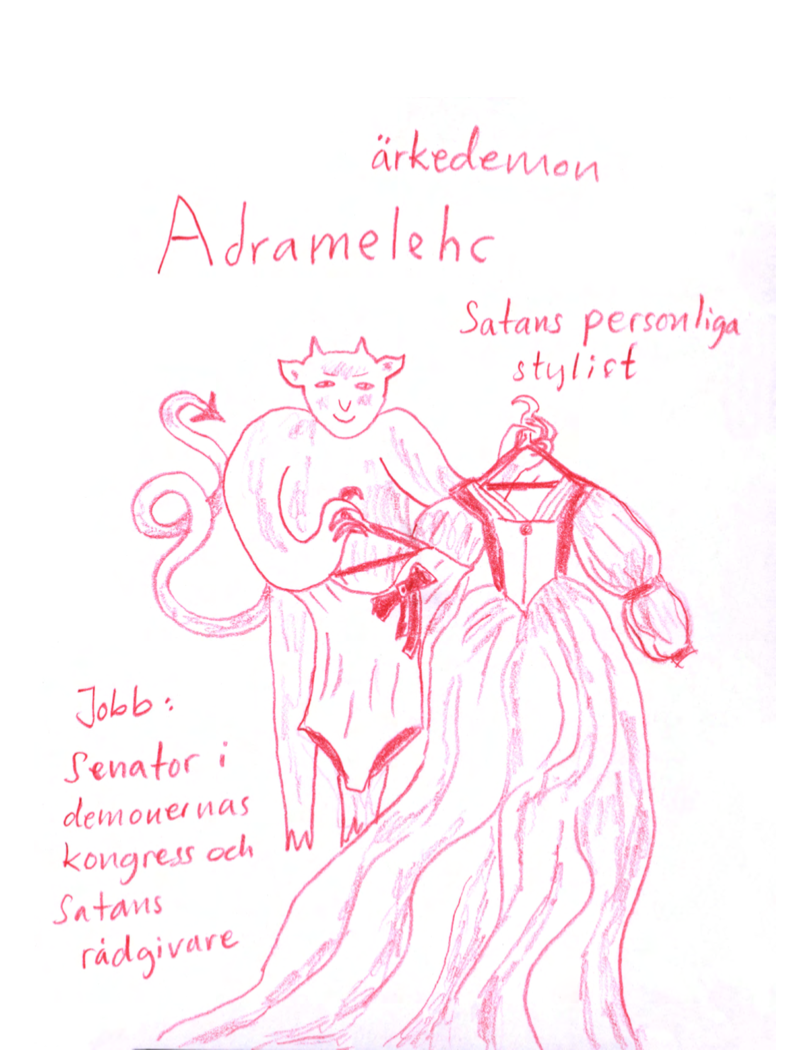 ärkedemon
Adramelehc
Satans personliga
stylist
Jobb:
Senator i
demonernas
kongress och
Satans
rådgivare